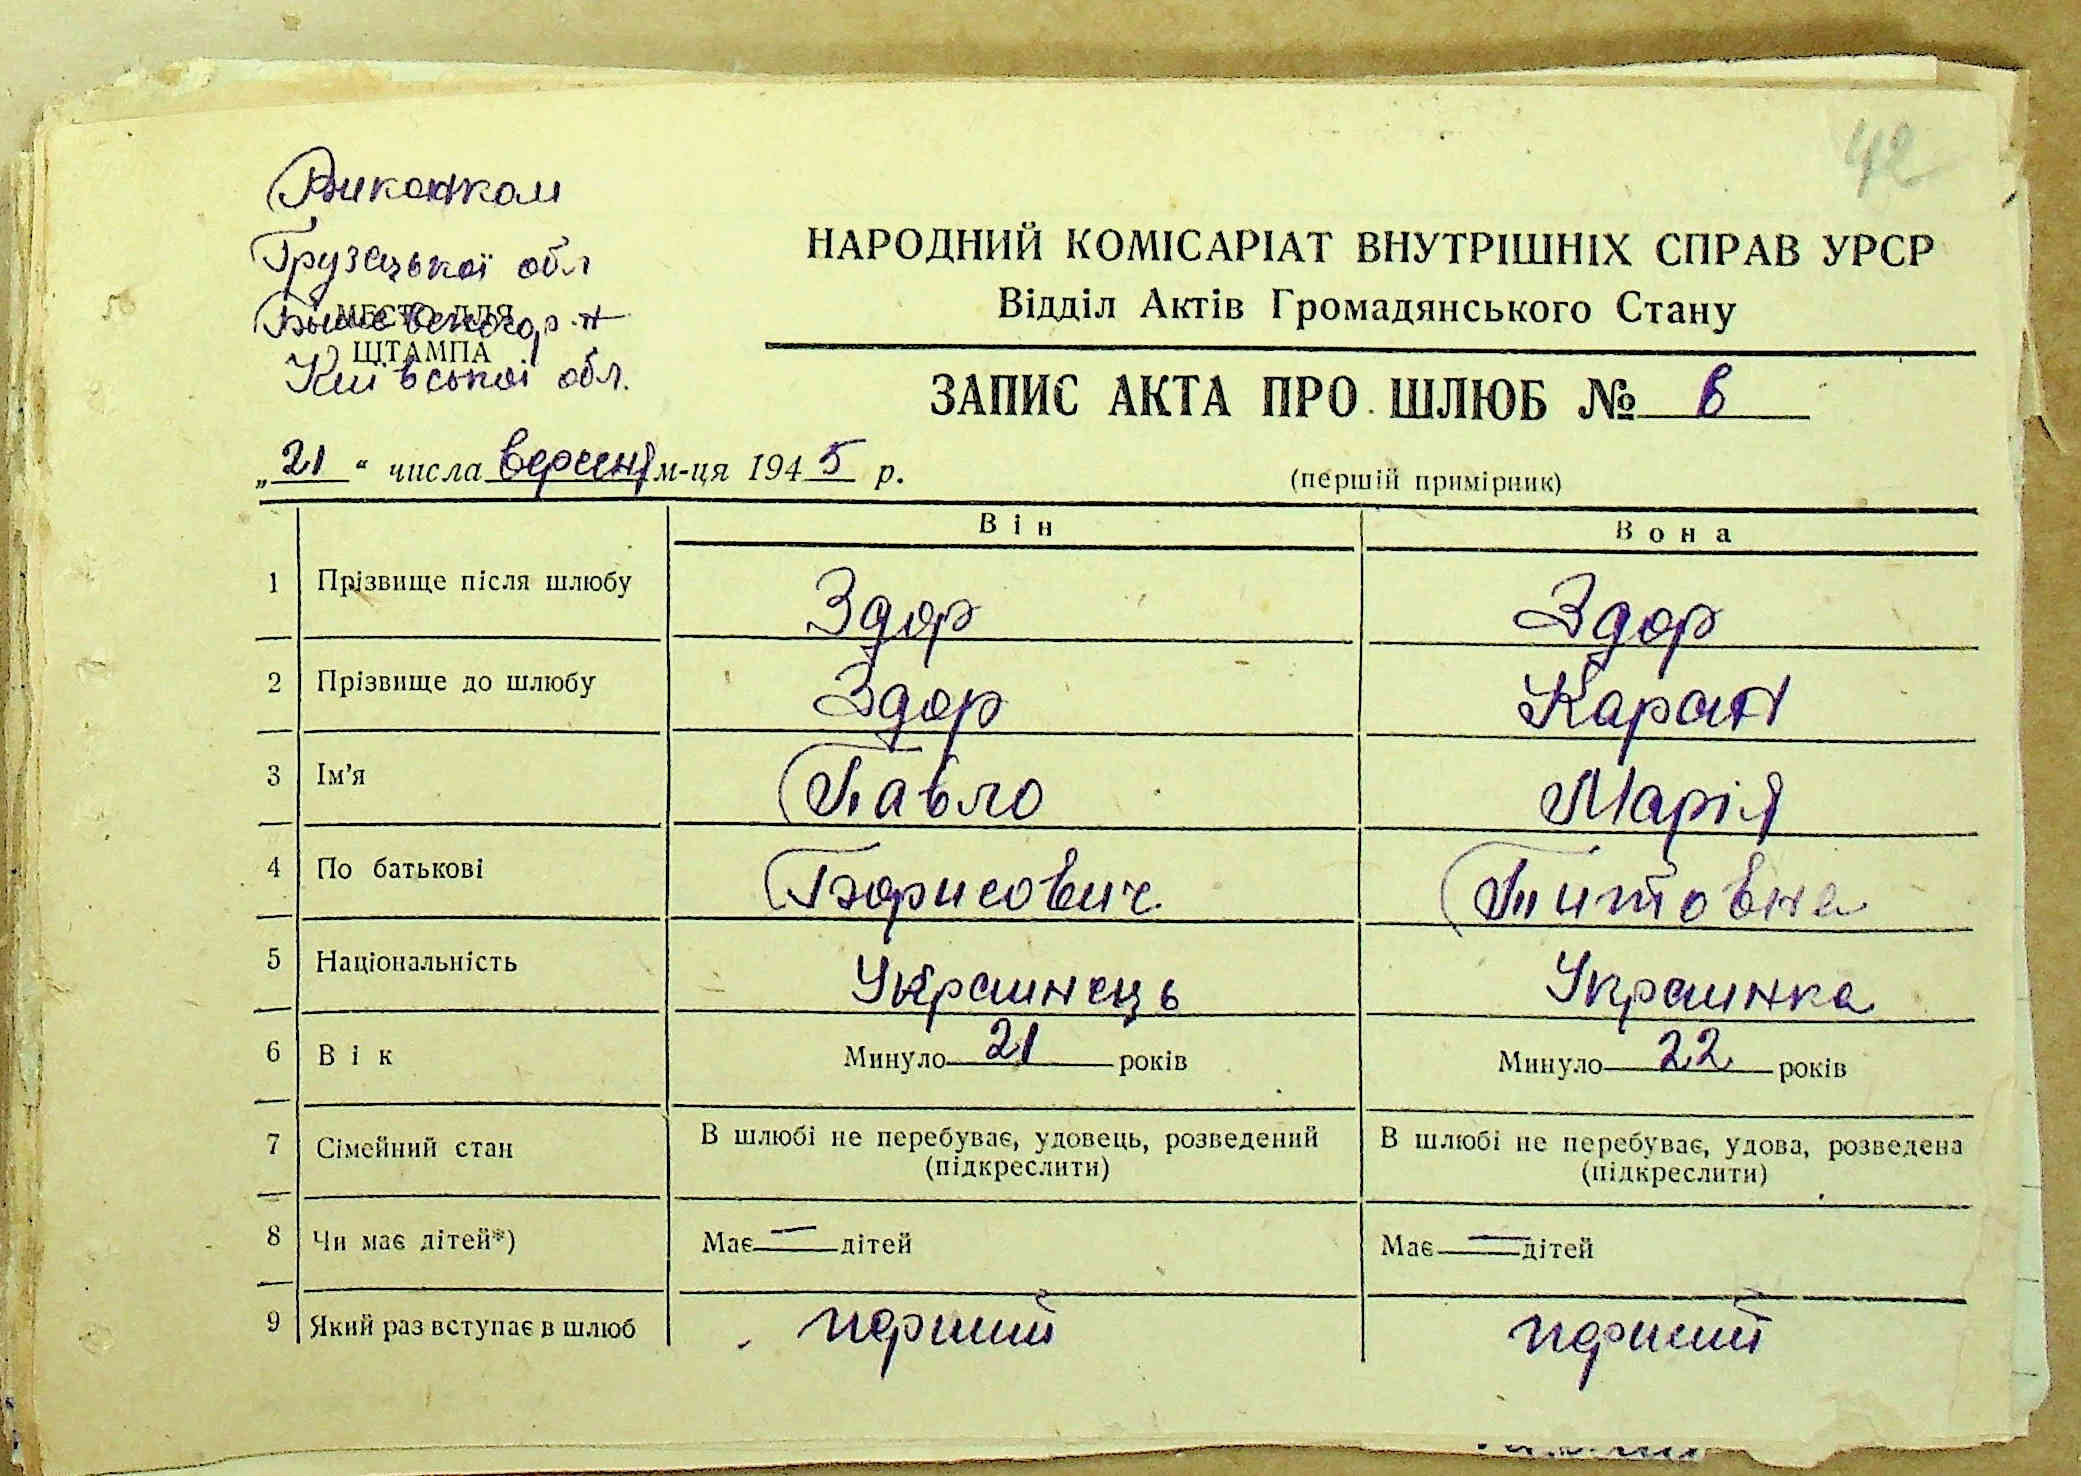 42
Виконком
Грузецької обл
МЕСТО ДЛЯ
ШТАМПА
Київської обл.
НАРОДНИЙ КОМІСАРІАТ ВНУТРІШНІХ СПРАВ УРСР
Відділ Актів Громадянського Стану
ЗАПИС АКТА ПРО ШЛЮБ № 8
„21“ числа вересня м-ця 1945 р.
(першій примірник)
Він Вона
1 Прізвище після шлюбу Здор Здор
2 Прізвище до шлюбу Здор Каран
3 Ім'я Павло Марія
4 По батькові Борисович Титовна
5 Національність Украинець Украинка
6 Вік Минуло 21 років Минуло 22 років
7 Сімейний стан В шлюбі не перебуває, удовець, розведений В шлюбі не перебуває, удова, розведена
(підкреслити) (підкреслити)
8 Чи має дітей*) Має — дітей Має — дітей
9 Який раз вступає в шлюб перший перший